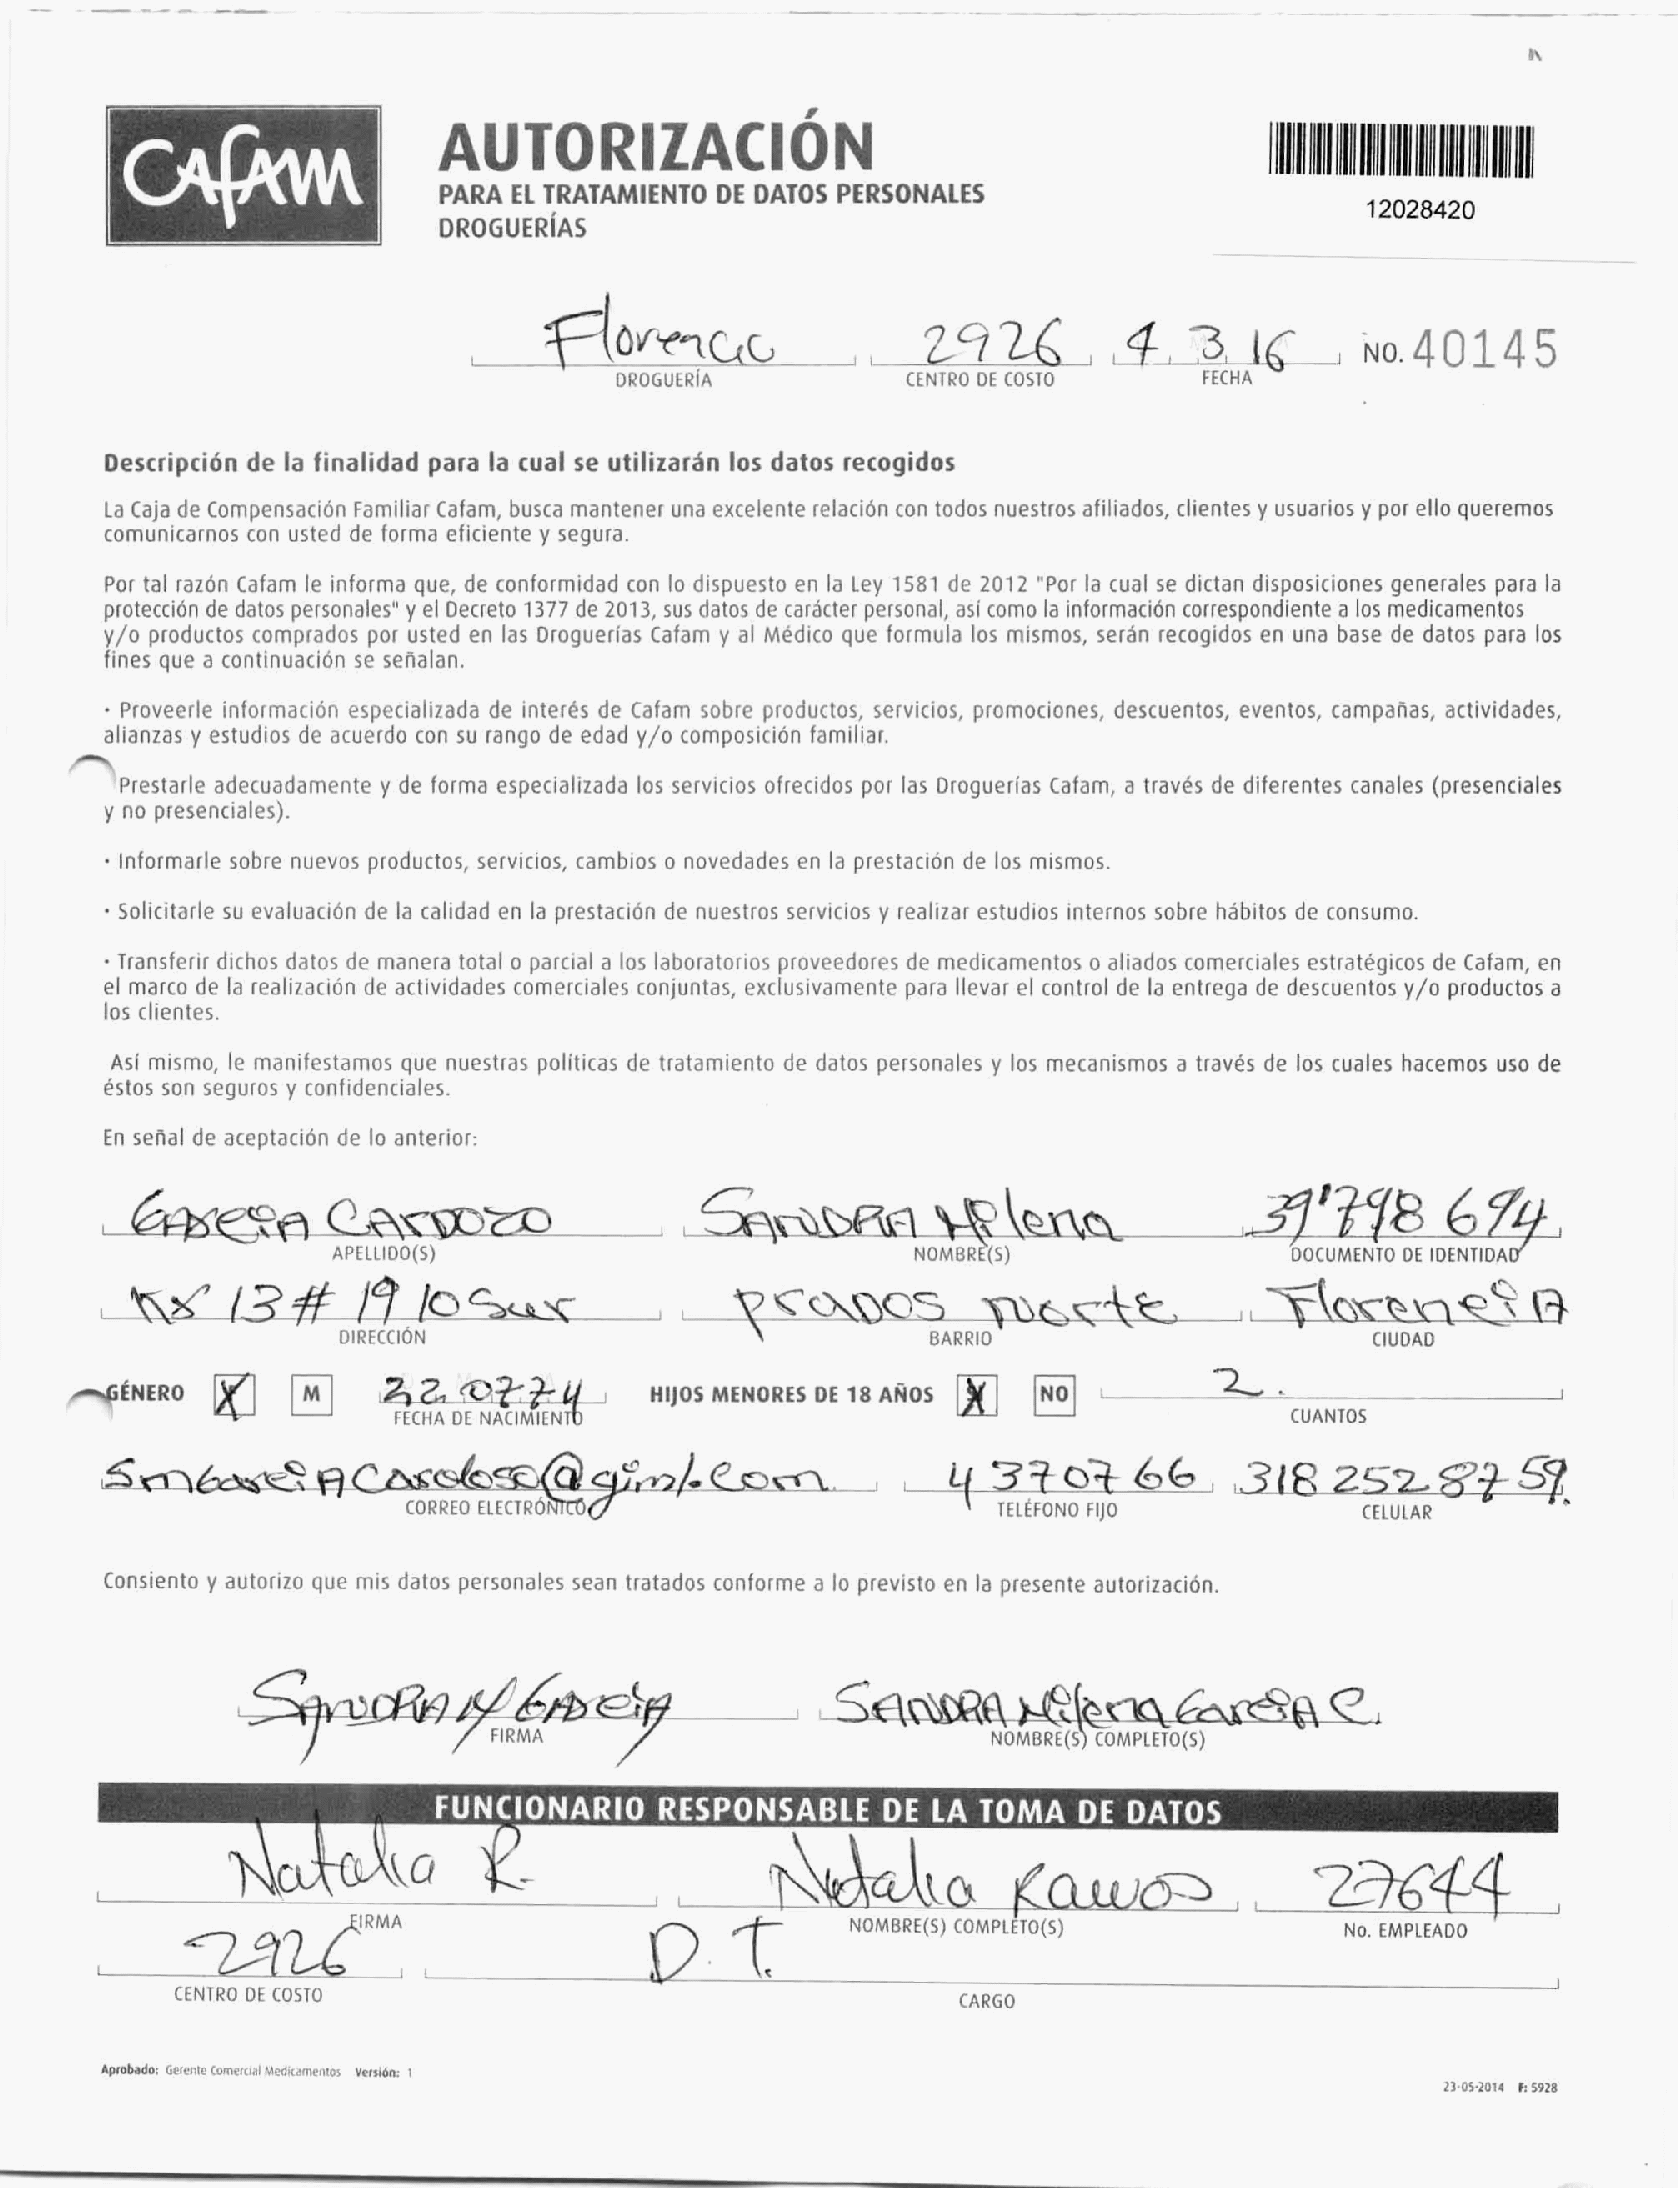 CAFAM
AUTORIZACIÓN
PARA EL TRATAMIENTO DE DATOS PERSONALES
DROGUERÍAS
12028420
Florencia 2926 4 3 16 NO. 40145
DROGUERÍA CENTRO DE COSTO FECHA
Descripción de la finalidad para la cual se utilizarán los datos recogidos
La Caja de Compensación Familiar Cafam, busca mantener una excelente relación con todos nuestros afiliados, clientes y usuarios y por ello queremos
comunicarnos con usted de forma eficiente y segura.
Por tal razón Cafam le informa que, de conformidad con lo dispuesto en la Ley 1581 de 2012 "Por la cual se dictan disposiciones generales para la
protección de datos personales" y el Decreto 1377 de 2013, sus datos de carácter personal, así como la información correspondiente a los medicamentos
y/o productos comprados por usted en las Droguerías Cafam y al Médico que formula los mismos, serán recogidos en una base de datos para los
fines que a continuación se señalan.
· Proveerle información especializada de interés de Cafam sobre productos, servicios, promociones, descuentos, eventos, campañas, actividades,
alianzas y estudios de acuerdo con su rango de edad y/o composición familiar.
Prestarle adecuadamente y de forma especializada los servicios ofrecidos por las Droguerías Cafam, a través de diferentes canales (presenciales
y no presenciales).
· Informarle sobre nuevos productos, servicios, cambios o novedades en la prestación de los mismos.
· Solicitarle su evaluación de la calidad en la prestación de nuestros servicios y realizar estudios internos sobre hábitos de consumo.
· Transferir dichos datos de manera total o parcial a los laboratorios proveedores de medicamentos o aliados comerciales estratégicos de Cafam, en
el marco de la realización de actividades comerciales conjuntas, exclusivamente para llevar el control de la entrega de descuentos y/o productos a
los clientes.
Así mismo, le manifestamos que nuestras políticas de tratamiento de datos personales y los mecanismos a través de los cuales hacemos uso de
éstos son seguros y confidenciales.
En señal de aceptación de lo anterior:
GARCIA CARDOZO SANDRA Milena 39'798 694
APELLIDO(S) NOMBRE(S) DOCUMENTO DE IDENTIDAD
Kr 13 # 19 10 Sur prados norte FlorenciA
DIRECCIÓN BARRIO CIUDAD
GÉNERO X M 22 07 74 HIJOS MENORES DE 18 AÑOS X NO 2.
FECHA DE NACIMIENTO CUANTOS
4370766 318 252 87 59.
CORREO ELECTRÓNICO TELÉFONO FIJO CELULAR
Consiento y autorizo que mis datos personales sean tratados conforme a lo previsto en la presente autorización.
SANDRA M GARCIA SANDRA Milena GarciA C.
FIRMA NOMBRE(S) COMPLETO(S)
FUNCIONARIO RESPONSABLE DE LA TOMA DE DATOS
Natalia R. Natalia Ramos 27644
FIRMA NOMBRE(S) COMPLETO(S) No. EMPLEADO
2926 D.T.
CENTRO DE COSTO CARGO
Aprobado: Gerente Comercial Medicamentos Versión: 1
23-05-2014 F: 5928